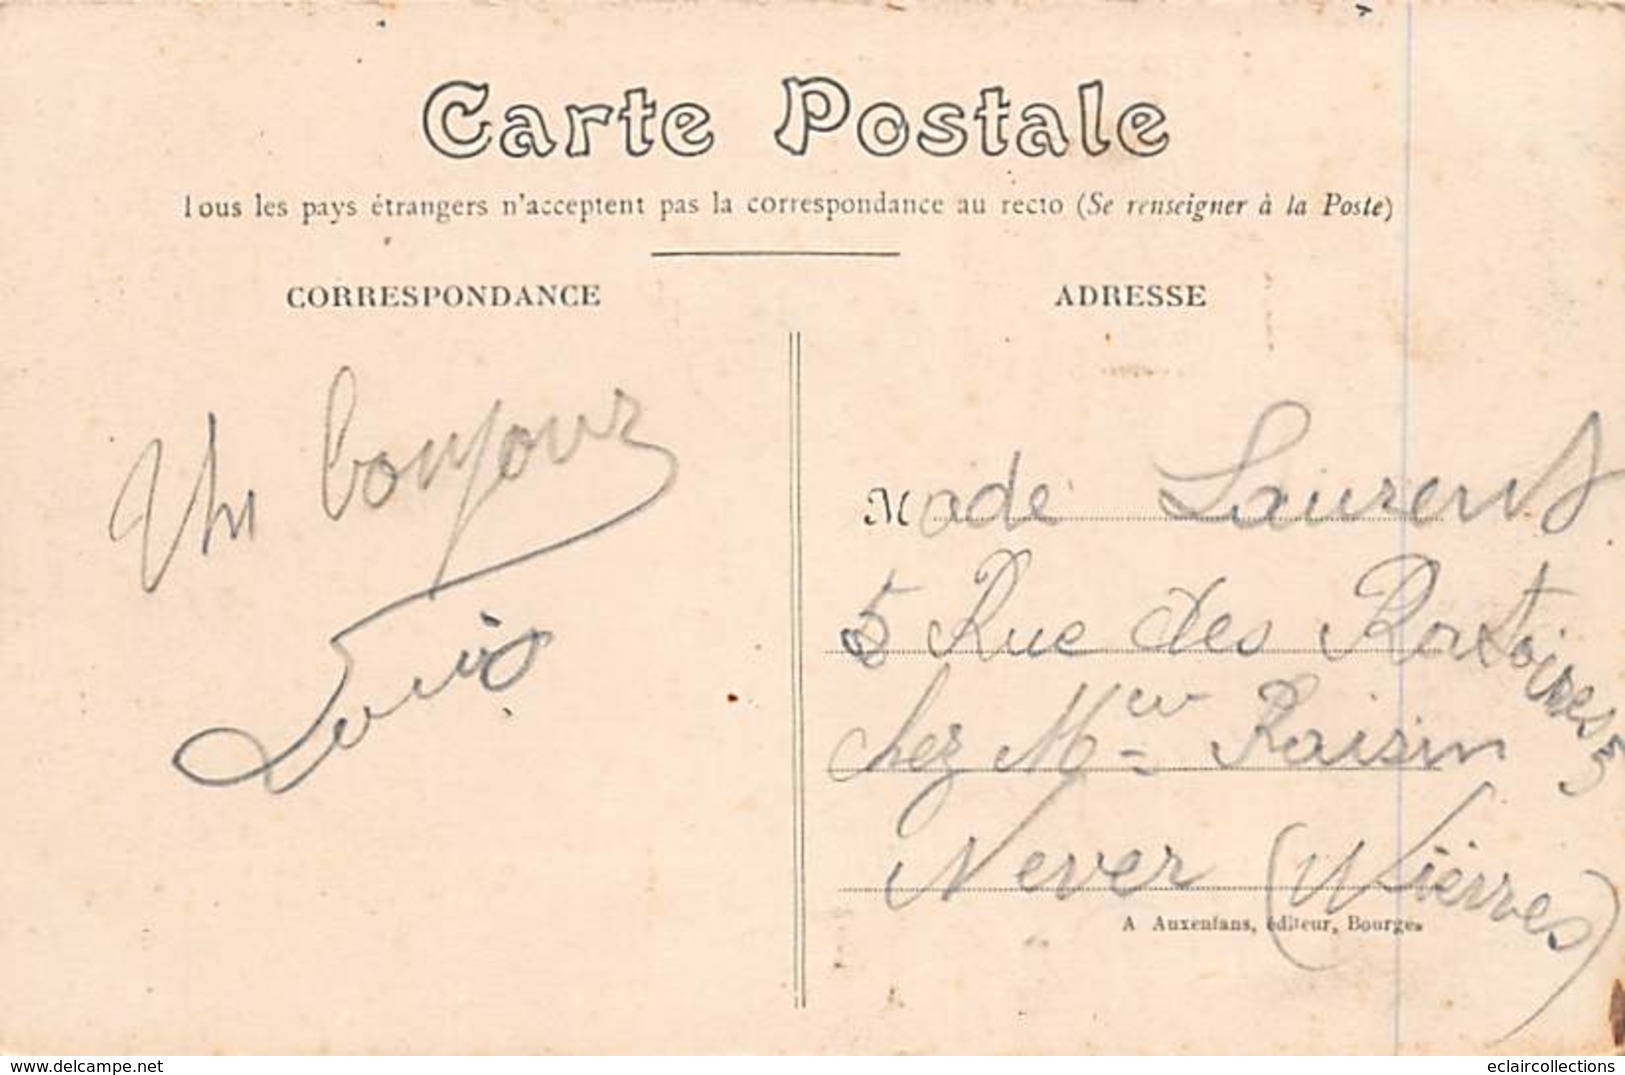 Carte Postale
Tous les pays étrangers n'acceptent pas la correspondance au recto (Se renseigner à la Poste)
CORRESPONDANCE
ADRESSE
Un bonjour
Louis
Made Laurent
5 Rue des Ratoires 5
chez Meur Raisin
Never (Nièvres)
A Auxenfans, éditeur, Bourges
www.delcampe.net
eclaircollections